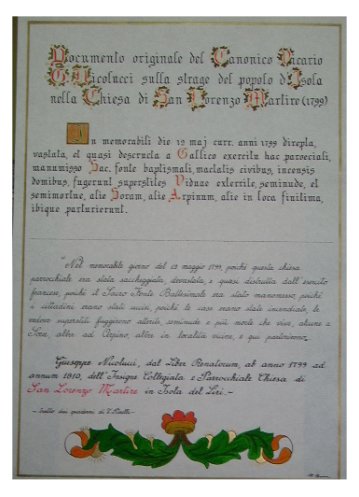 Documento originale del Canonico Vicario
G. Nicolucci sulla strage del popolo d'Isola
nella Chiesa di San Lorenzo Martire (1799)
In memorabili die 12 maj curr. anni 1799 direpta,
vastata, et quasi destructa a Gallico exercitu hac paroeciali,
manumisso Sac. fonte baptismali, mactatis civibus, incensis
domibus, fugerunt superstites Viduae exterrite, seminude, et
semimortue, alie Soram, alie Arpinum, alie in loca finitima,
ibique parturierunt.
"Nel memorabile giorno del 12 maggio 1799, poichè questa chiesa
parrocchiale era stata saccheggiata, devastata, e quasi distrutta dall'esercito
francese, poichè il Sacro Fonte Battesimale era stato manomesso, poichè
i cittadini erano stati uccisi, poichè le case erano state incendiate, le
vedove superstiti fuggirono atterrite, seminude e più morte che vive, alcune a
Sora, altre ad Arpino, altre in località vicine, e qui partorirono."
Giuseppe Nicolucci, dal Liber Renatorum, ab anno 1799 ad
annum 1810, dell'Insigne Collegiata e Parrocchiale Chiesa di
San Lorenzo Martire in Isola del Liri.-
- tratto dai quaderni di V.